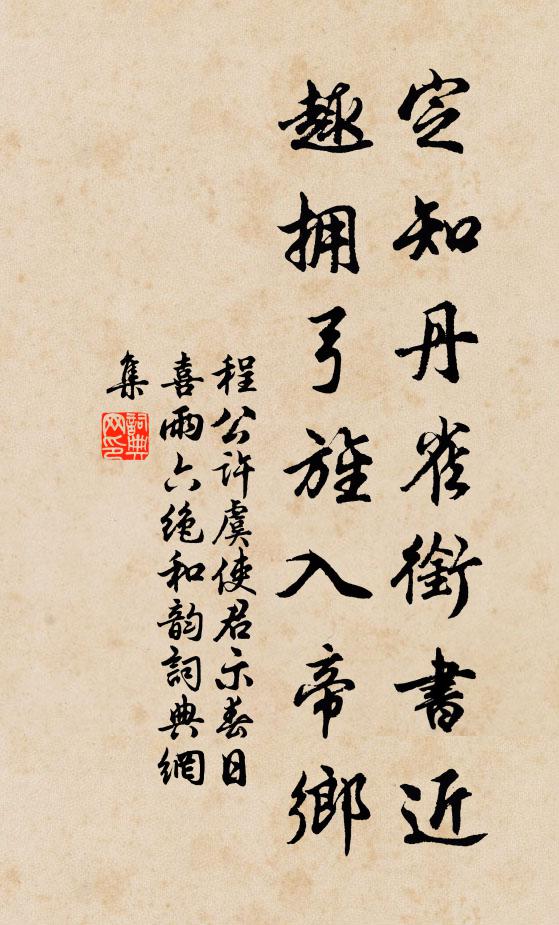 定知丹雀銜書近
趣拥弓旌入帝鄉
程公許虞使君示春日
喜雨六绝和韵詞典網
集
詞典
网印